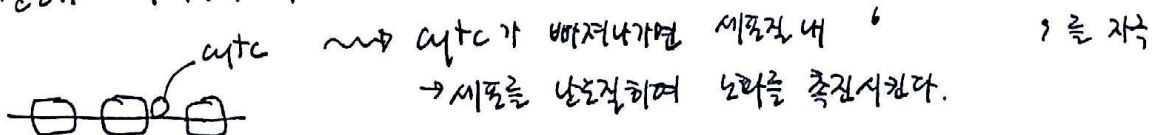 cytc ⇝ cytc가 빠져나가면 세포질 내 ‘ ’를 자극
→ 세포를 난도질하여 노화를 촉진시킨다.